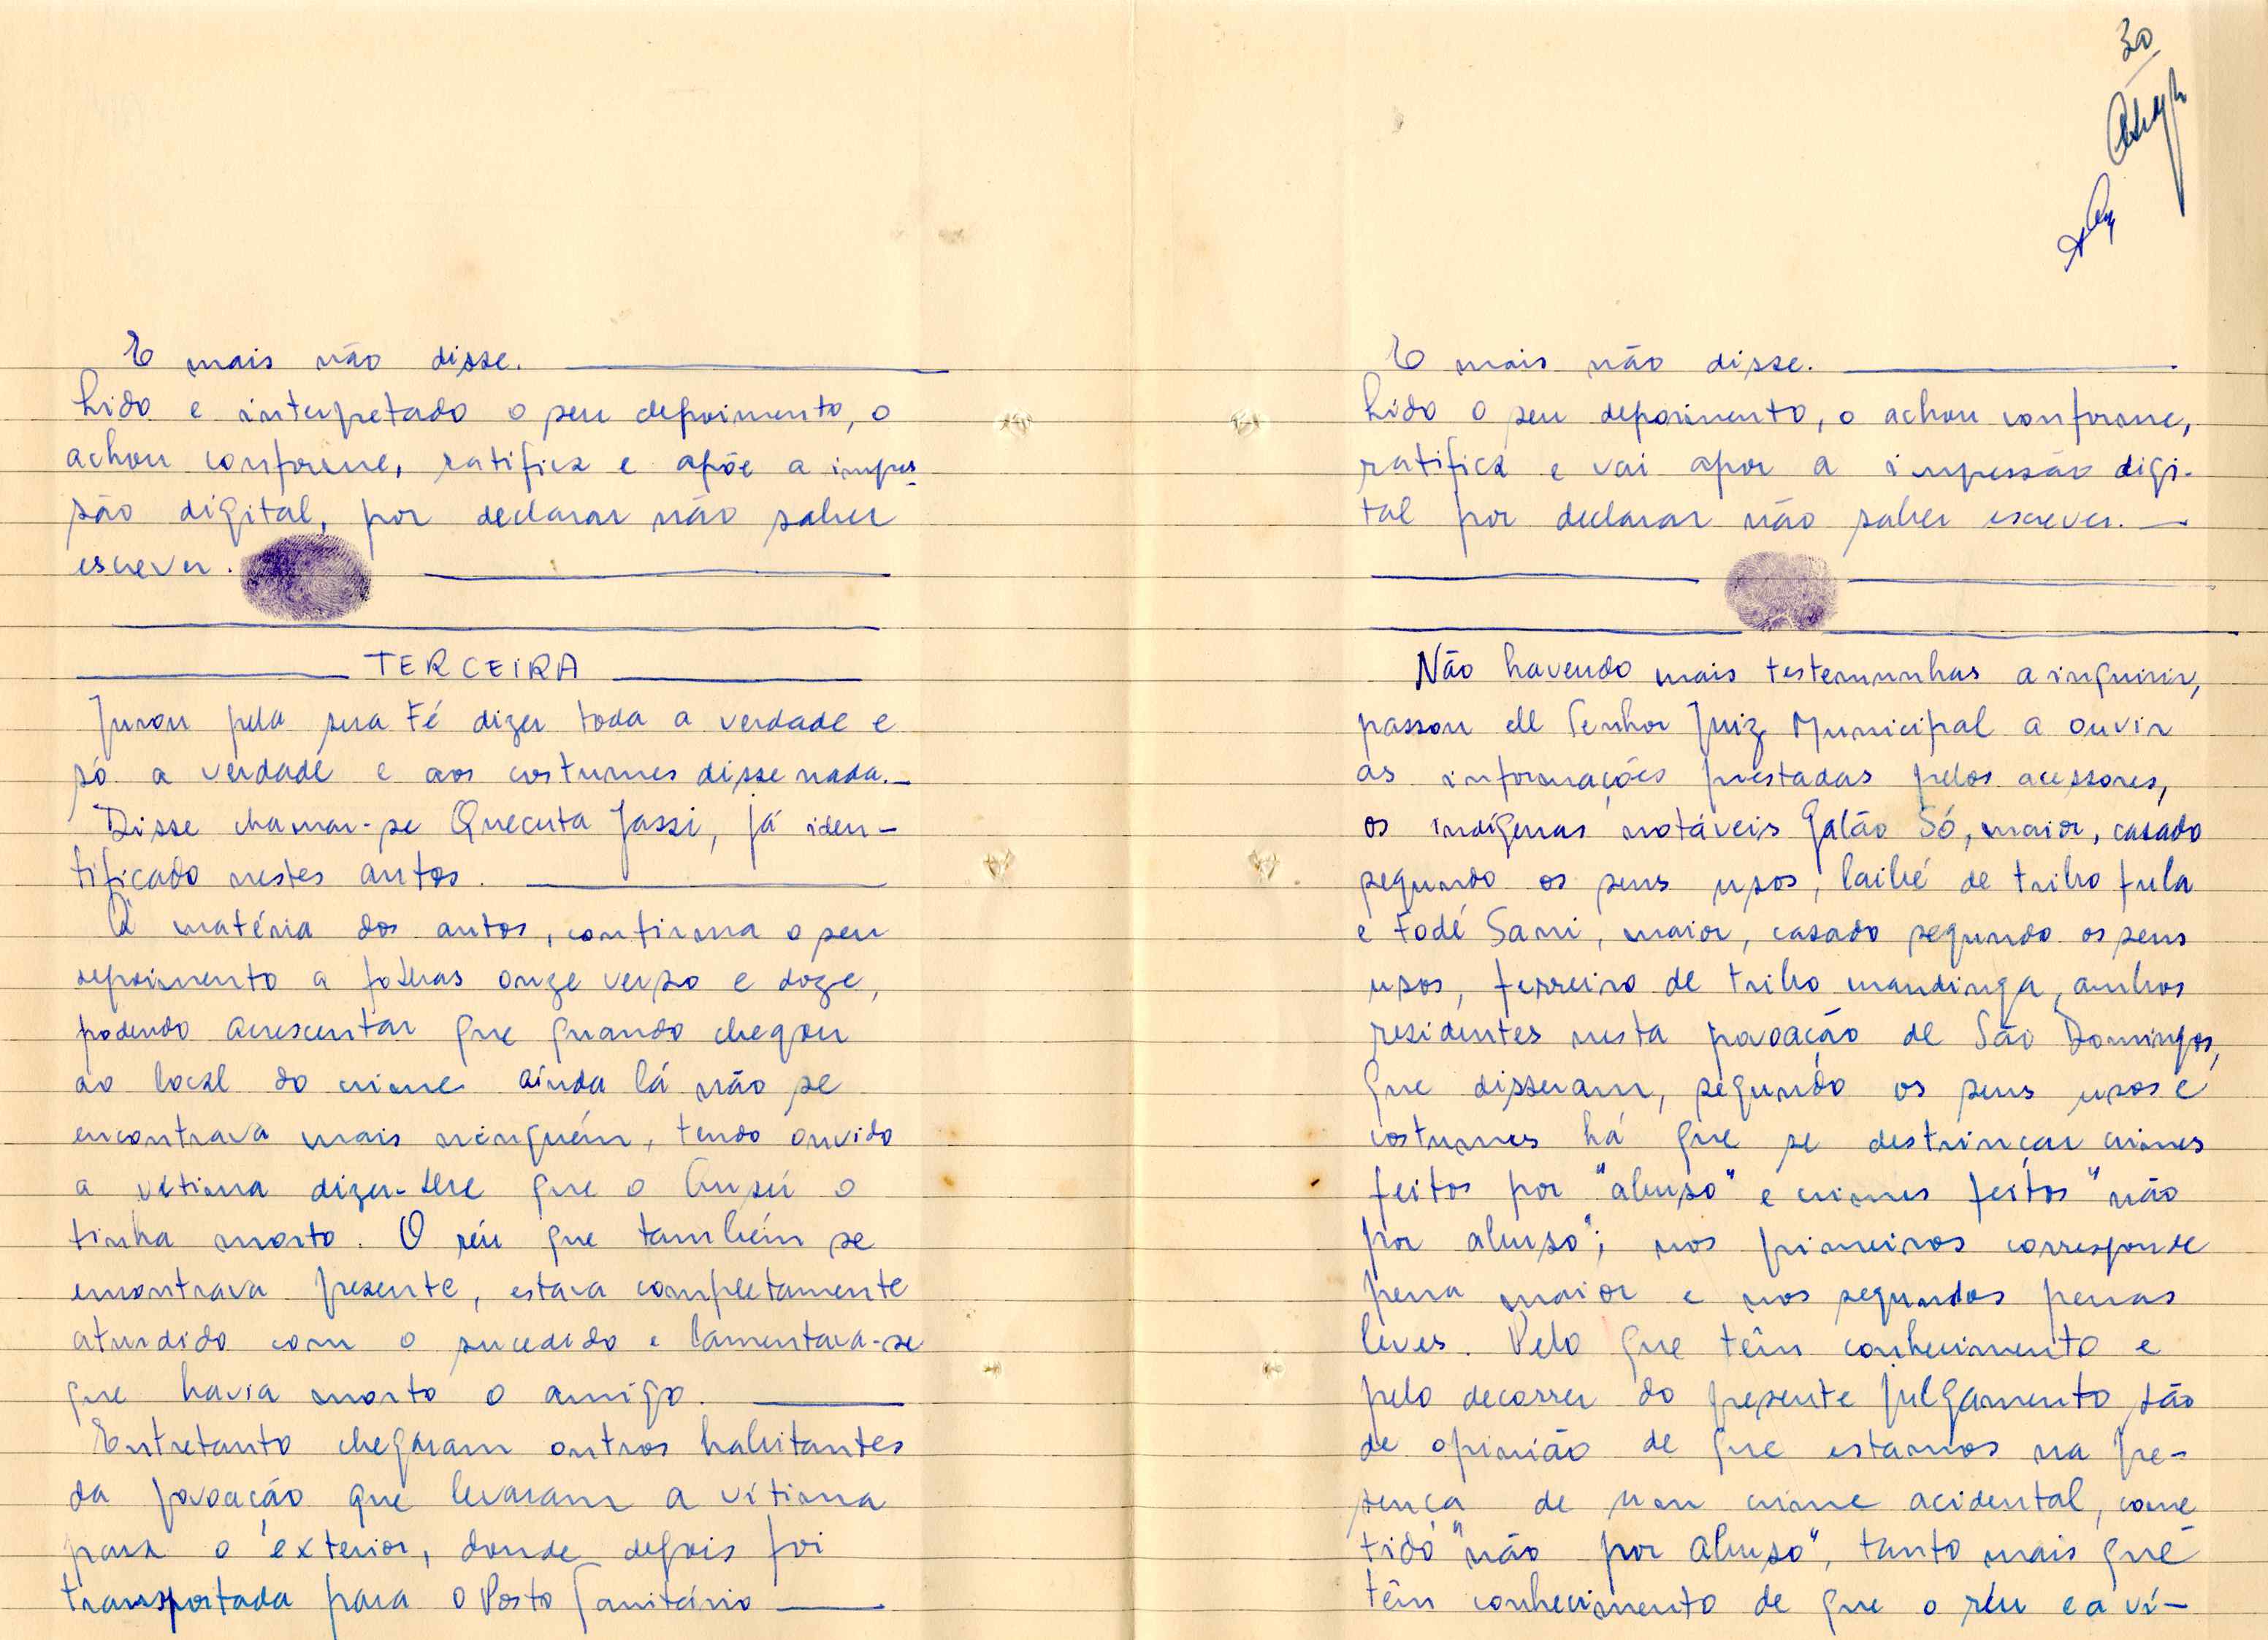 E mais não disse.
Lido e interpretado o seu depoimento, o
achou conforme, ratifica e apõe a impres
são digital, por declarar não saber
escrever.
TERCEIRA
Jurou pela sua Fé dizer toda a verdade e
só a verdade e aos costumes disse nada.
Disse chamar-se Quecuta Jassi, já iden-
tificado nestes autos.
À matéria dos autos, confirma o seu
depoimento a folhas onze verso e doze,
podendo acrescentar que quando chegou
ao local do crime ainda lá não se
encontrava mais ninguém, tendo ouvido
a vitima dizer-lhe que o Ansú o
tinha morto. O réu que também se
encontrava presente, estava completamente
aturdido com o sucedido e lamentava-se
que havia morto o amigo.
Entretanto chegaram outros habitantes
da povoação que levaram a vítima
para o exterior, donde depois foi
transportada para o Posto Sanitário
30
E mais não disse.
Lido o seu depoimento, o achou conforme,
ratifica e vai apor a impressão digi-
tal por declarar não saber escrever.
Não havendo mais testemunhas a inquirir,
passou ele Senhor Juiz Municipal a ouvir
as informações prestadas pelos acessores,
os indígenas notáveis Galão Só, maior, casado
segundo os seus usos, laibé de tribo fula
e Fodé Sani, maior, casado segundo os seus
usos, ferreiro de tribo mandinga, ambos
residentes nesta povoação de São Domingos,
que disseram, segundo os seus usos e
costumes há que se destrinçar crimes
feitos por "abuso" e crimes feitos "não
por abuso"; nos primeiros corresponde
pena maior e nos segundos penas
leves. Pelo que têm conhecimento e
pelo decorrer do presente julgamento são
de opinião de que estamos na pre-
sença de um crime acidental, come
tido "não por abuso", tanto mais que
têm conhecimento de que o réu e a ví-